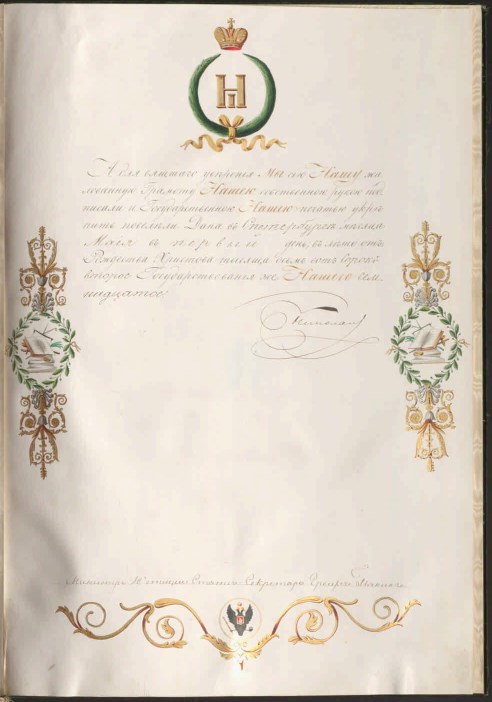 Н I
А для вящшаго увѣренія Мы сію Нашу жа-
лованную Грамоту Нашею собственною рукою под-
писали и Государственною Нашею печатью укрѣ-
пить повелѣли. Дана въ С. Петербургѣ мѣсяца
Маія въ первый день, въ лѣто отъ
Рождества Христова тысяща восемь сотъ сорокъ
второе Государствованія же Нашего сем-
надцатое.
Николай
Министръ Юстиціи Статсъ-Секретарь Графъ Панинъ